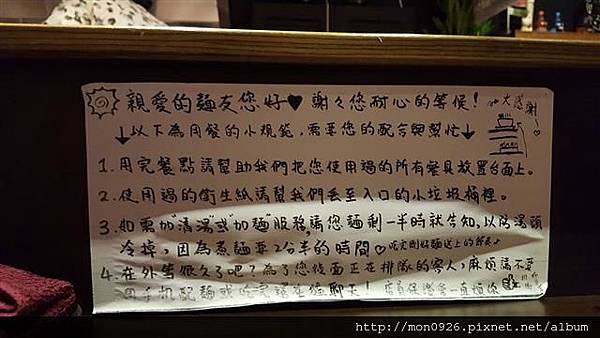 親愛的麵友您好♥ 謝々您耐心的等候!
大感謝
↓以下為用餐的小規範,需要您的配合與幫忙↓
1. 用完餐點請幫助我們把您使用過的所有餐具放置台面上。
2. 使用過的衛生紙請幫我們丟至入口的小垃圾桶裡。
3. 如需加"清湯"或"加麵"服務,請您麵剩一半時就告知,以防湯頭
冷掉,因為煮麵要2分半的時間♡吃完剛好麵送上的節奏♪
4. 在外等很久了吧?為了您後面正在排隊的客人,麻煩請不要
用手機配麵或吃完還在聊天!
http://mon0926.pixnet.net/album